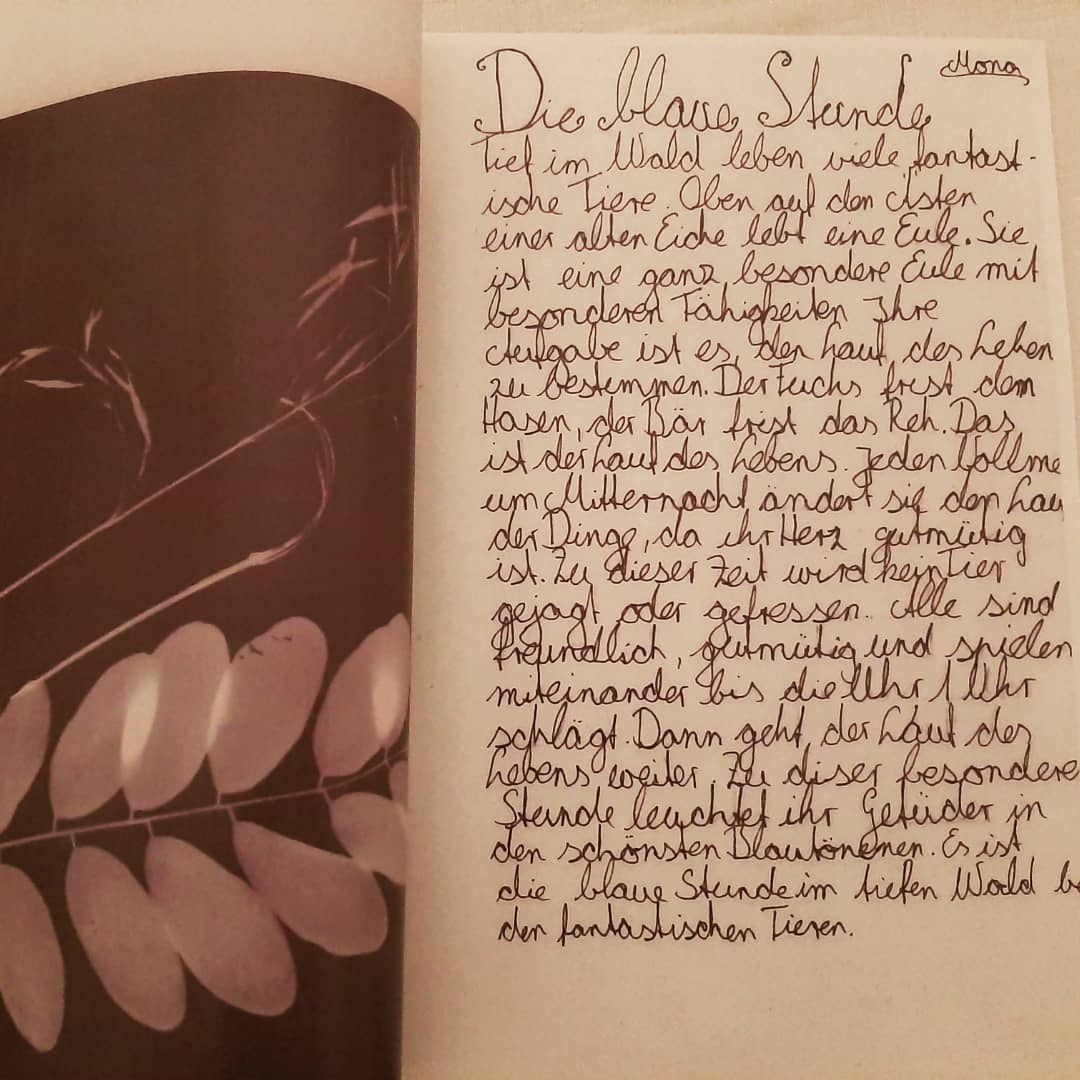 Mona
Die blaue Stunde
Tief im Wald leben viele fantast-
ische Tiere. Oben auf den Ästen
einer alten Eiche lebt eine Eule. Sie
ist eine ganz besondere Eule mit
besonderen Fähigkeiten Ihre
Aufgabe ist es, den Lauf des Leben
zu bestemmen. Der Fuchs frist dem
Hasen, der Bär frist das Reh. Das
ist der Lauf des Lebens. Jeden Vollmo
um Mitternacht ändert sie den Lau
der Dinge, da ihr Herz gutmütig
ist. Zu dieser Zeit wird kein Tier
gejagt oder gefressen. Alle sind
freundlich, gutmütig und spielen
miteinander bis die Uhr 1 Uhr
schlägt. Dann geht der Lauf des
Lebens weiter. Zu diser besondere
Stunde leuchtet ihr Gefüder in
den schönsten Blautönenen. Es ist
die blaue Stunde im tiefen Wald be
den fantastischen Tieren.